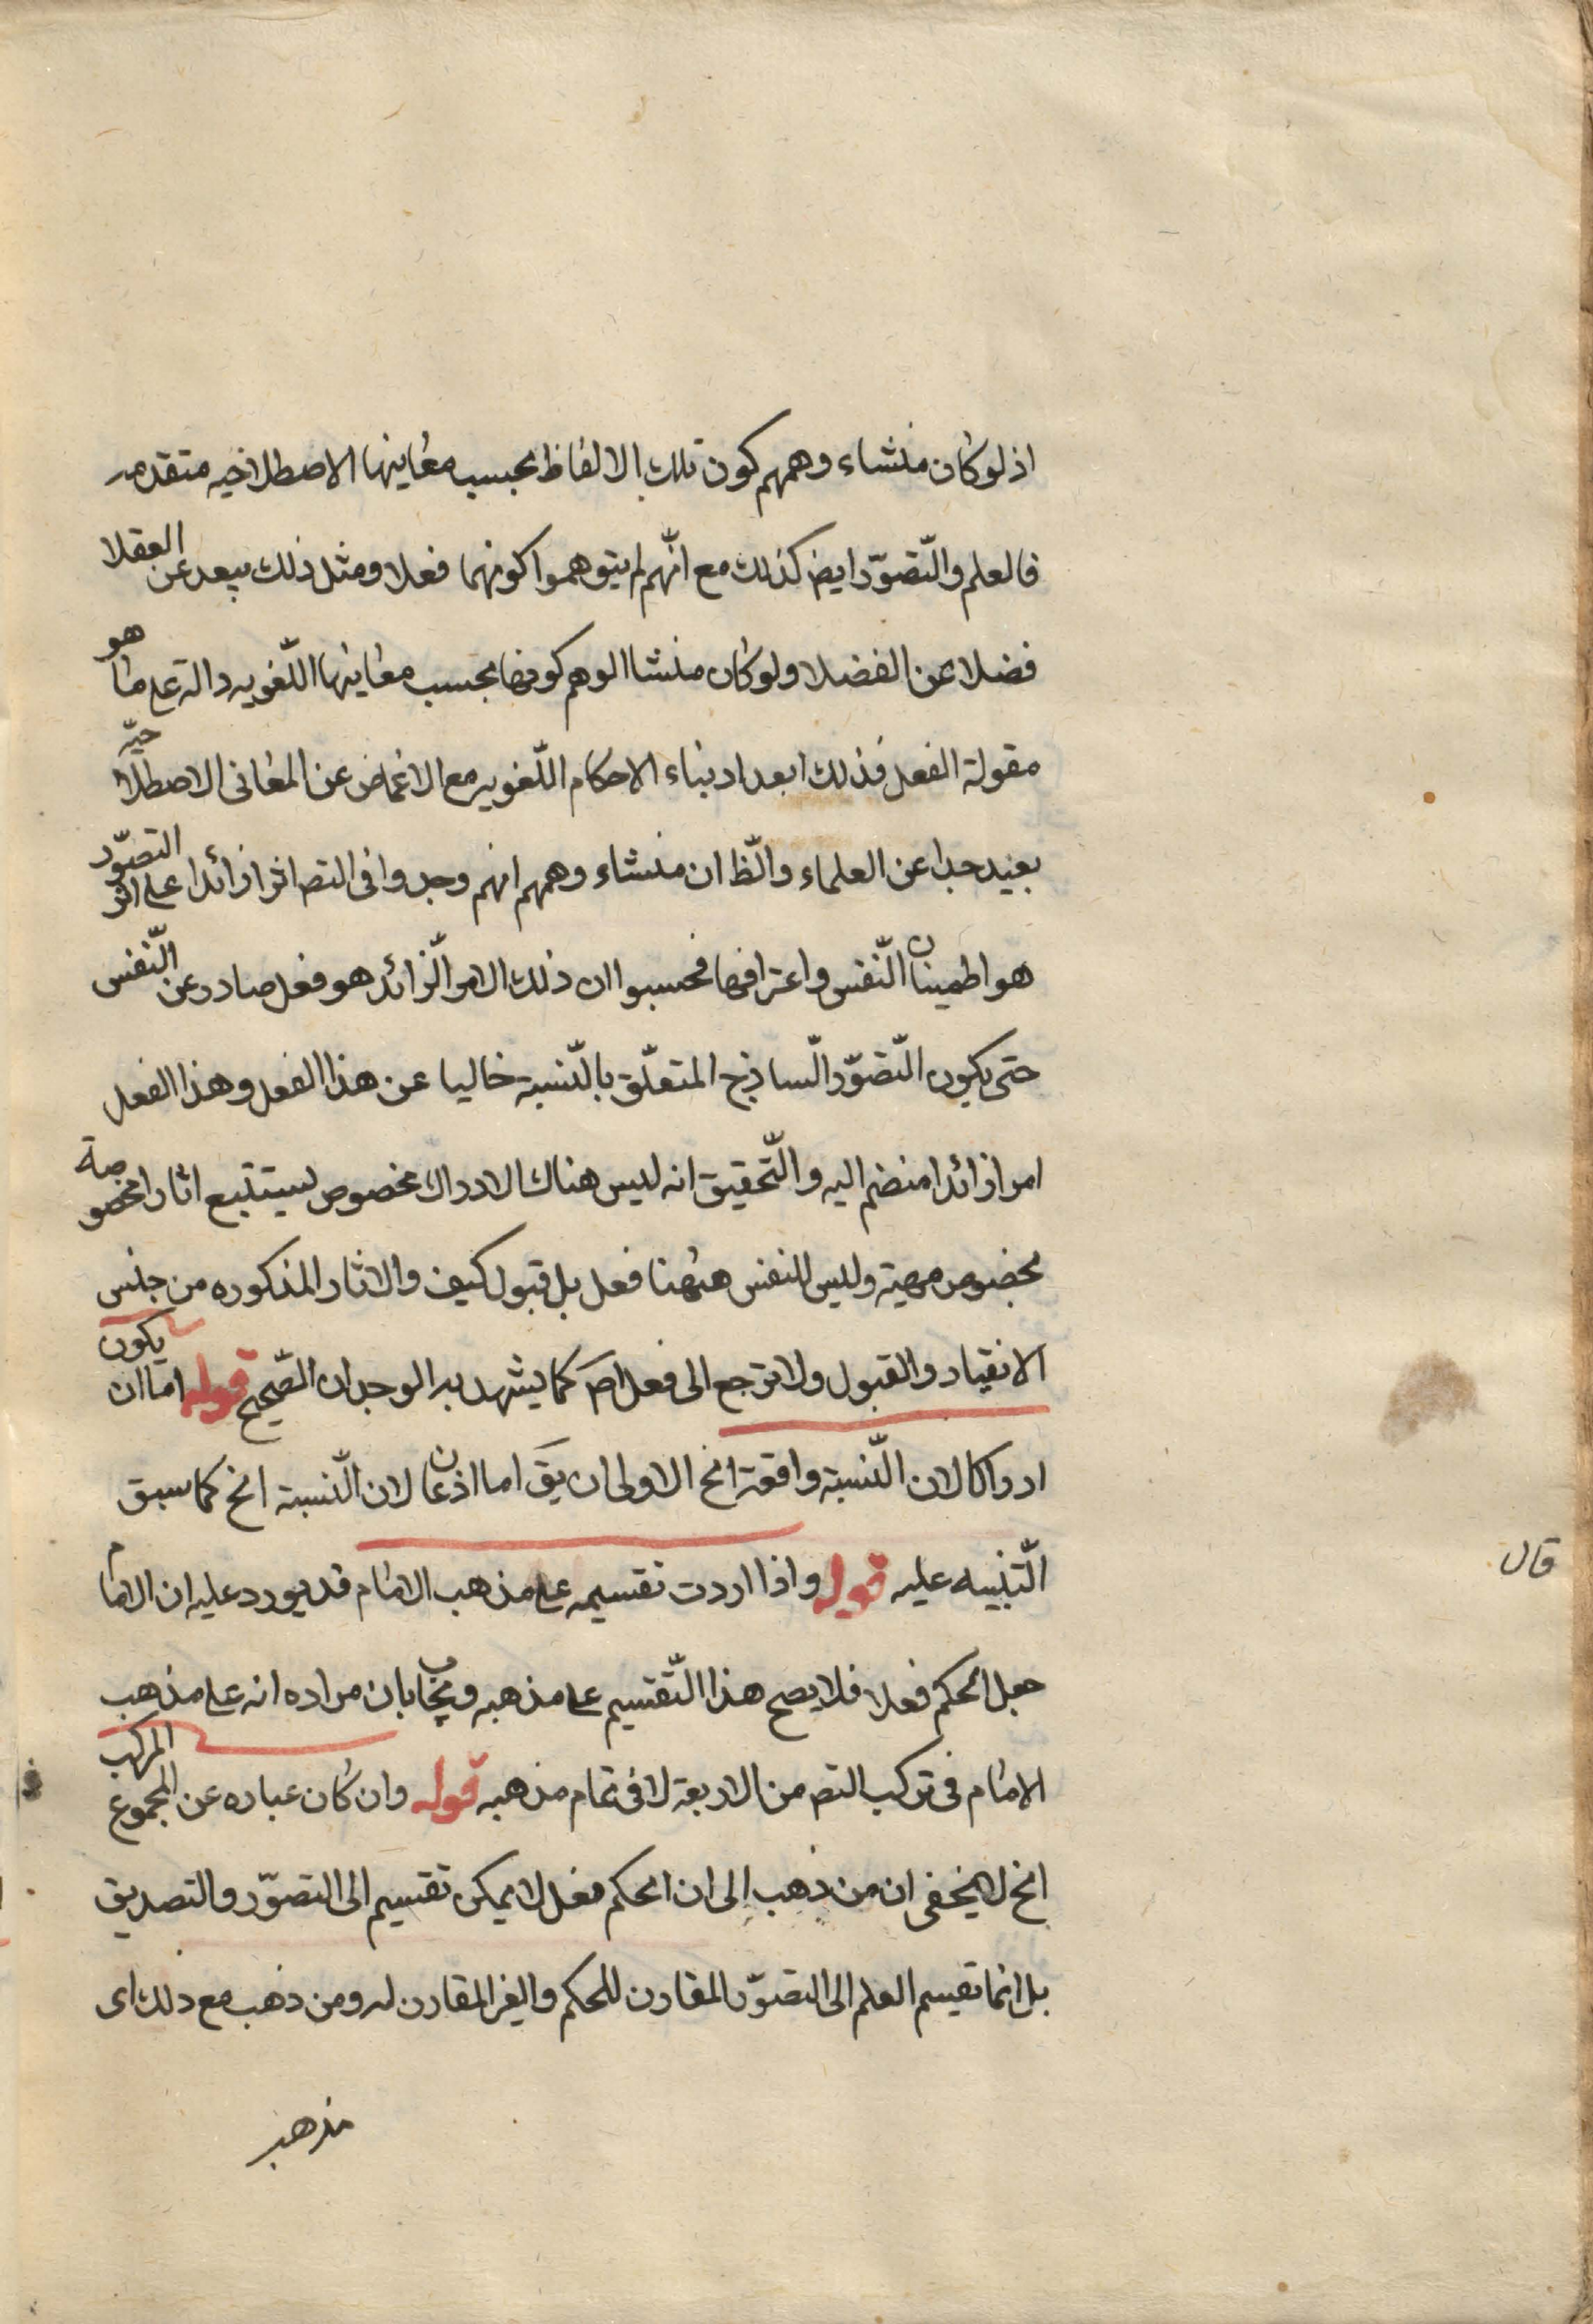 اذ لو كان منشاء وهمهم كون تلك الالفاظ بحسب معاينها الاصطلاحيه متقدمه
فالعلم والتّصوّر ايض كذلك مع انّهم لم يتوهموا كونهما فعلا ومثل ذلك يبعد عن العقلا
فضلا عن الفضلا ولو كان منشا الوهم كونها بحسب معاينها اللّغويه دالة على ما هو
مقولة الفعل فذلك ابعد اذ بناء الاحكام اللّغويه مع الاغماض عن المعانى الاصطلاحيّه
بعيد جدا عن العلماء والظّ ان منشاء وهمهم انهم وجدوا فى التص اثرا زائدا على اثر التصوّر
هو اطمينان النّفس واعترافها فحسبوا ان ذلك الامر الزّائد هو فعل صادر عن النّفس
حتى يكون التّصوّر السّاذج المتعلّق بالنّسبة خاليا عن هذا الفعل وهذا الفعل
امرا زائدا منضم اليه والتّحقيق انه ليس هناك الا ادراك مخصوص يستتبع اثارا مخصوصة
بخصوص مهية وليس للنفس ههنا فعل بل قبول كيف والاثار المذكوره من جنس
الانقياد والقبول ولا ترجع الى فعل اصَ كما يشهد به الوجدان الصّحيح قوله اما ان يكون
ادراكا لان النّسبة واقعة الخ الاولى ان يقَ اما اذعان لان النّسبة الخ كما سبق
التّنبيه عليه قوله واذا اردت تقسيمه على مذهب الامام قد يورد عليه ان الامام
جعل الحكم فعلا فلا يصح هذا التّقسيم على مذهبه ويجاب بان مراده انه على مذهب
الامام فى تركب التص من الاربعة لا فى تمام مذهبه قوله وان كان عباره عن المجموع المركب
الخ لا يخفى ان من ذهب الى ان الحكم فعل لا يمكن تقسيم الى التصوّر والتصديق
بل انما تقيسم العلم الى التصوّر المقارن للحكم والغير المقارن له ومن ذهب مع ذلك اى
مذهب
قال